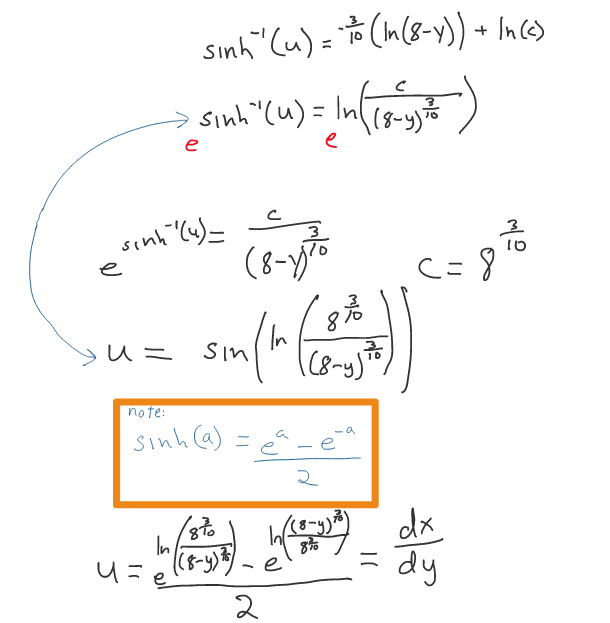 sinh⁻¹(u) = -3/10 (ln(8-y)) + ln(c)
sinh⁻¹(u) = ln(c/(8-y)^(3/10))
e e
e^(sinh⁻¹(u)) = c/(8-y)^(3/10) c = 8^(3/10)
u = sin(ln(8^(3/10)/(8-y)^(3/10)))
note:
sinh(a) = (e^a - e^(-a))/2
u = (e^(ln(8^(3/10)/(8-y)^(3/10))) - e^(ln((8-y)^(3/10)/8^(3/10))))/2 = dx/dy